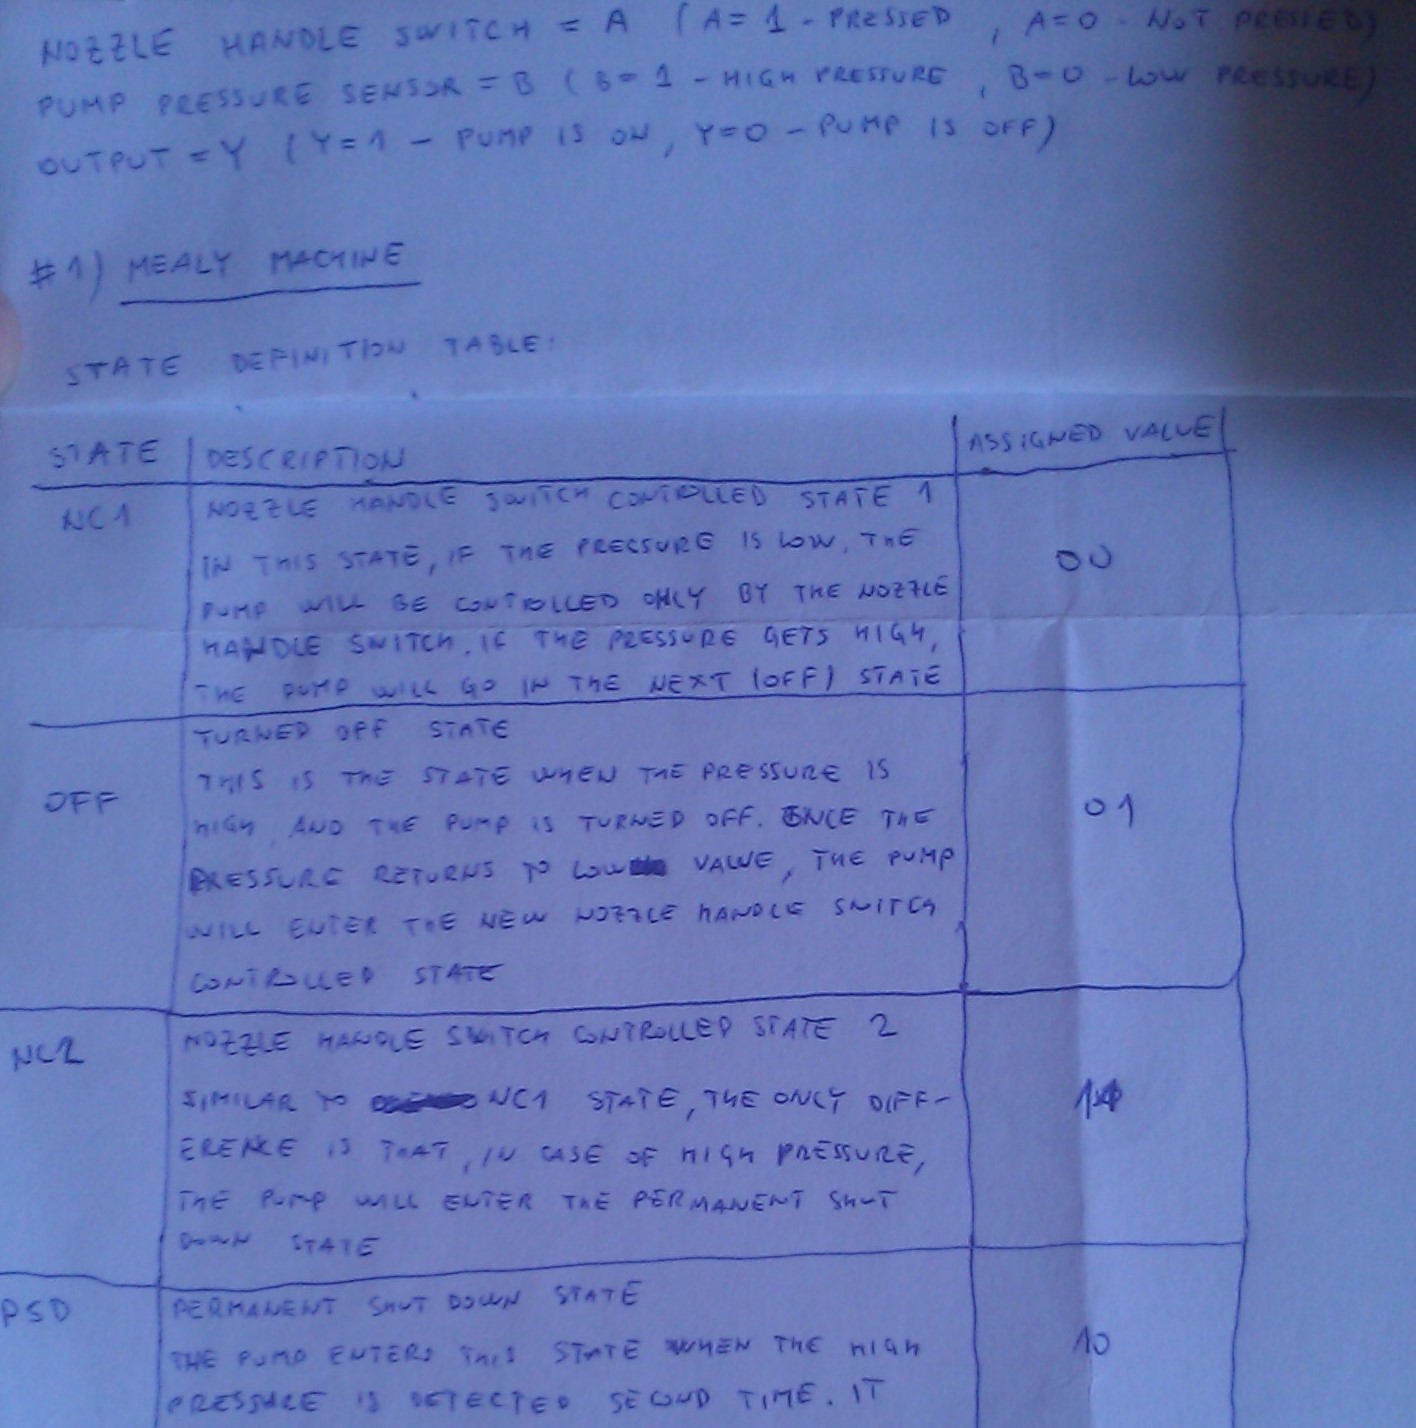 NOZZLE HANDLE SWITCH = A (A=1 - PRESSED, A=0 - NOT PRESSED)
PUMP PRESSURE SENSOR = B (B=1 - HIGH PRESSURE, B=0 - LOW PRESSURE)
OUTPUT = Y (Y=1 - PUMP IS ON, Y=0 - PUMP IS OFF)
#1) MEALY MACHINE
STATE DEFINITION TABLE:
STATE DESCRIPTION ASSIGNED VALUE
NC1 NOZZLE HANDLE SWITCH CONTROLLED STATE 1
IN THIS STATE, IF THE PRESSURE IS LOW, THE 00
PUMP WILL BE CONTROLLED ONLY BY THE NOZZLE
HANDLE SWITCH. IF THE PRESSURE GETS HIGH,
THE PUMP WILL GO IN THE NEXT (OFF) STATE
TURNED OFF STATE
THIS IS THE STATE WHEN THE PRESSURE IS
OFF HIGH AND THE PUMP IS TURNED OFF. ONCE THE 01
PRESSURE RETURNS TO LOW VALUE, THE PUMP
WILL ENTER THE NEW NOZZLE HANDLE SWITCH
CONTROLLED STATE
NC2 NOZZLE HANDLE SWITCH CONTROLLED STATE 2
SIMILAR TO NC1 STATE, THE ONLY DIFF- 11
ERENCE IS THAT, IN CASE OF HIGH PRESSURE,
THE PUMP WILL ENTER THE PERMANENT SHUT
DOWN STATE
PSD PERMANENT SHUT DOWN STATE
THE PUMP ENTERS THIS STATE WHEN THE HIGH 10
PRESSURE IS DETECTED SECOND TIME. IT